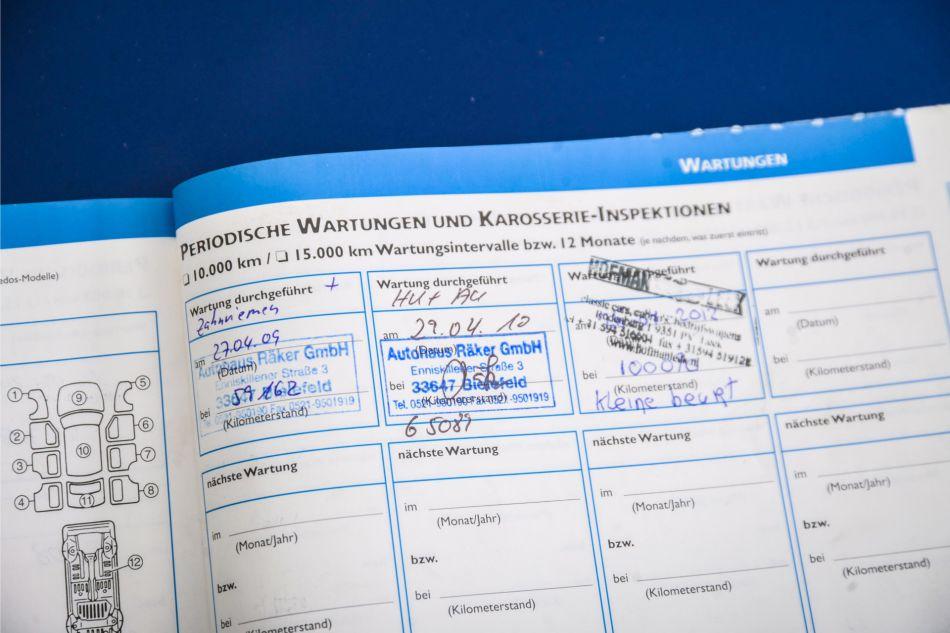 WARTUNGEN
PERIODISCHE WARTUNGEN UND KAROSSERIE-INSPEKTIONEN
❏ 10.000 km / ❏ 15.000 km Wartungsintervalle bzw. 12 Monate (je nachdem, was zuerst eintrist)
edos-Modelle)
1
2
3
4
5
6
7
8
9
10
11
12
Wartung durchgeführt +
Zahnriemen
am 27.04.09
(Datum)
Autohaus Räker GmbH
Enniskillener Straße 3
bei
(Kilometerstand)
nächste Wartung
im
(Monat/Jahr)
bzw.
bei
(Kilometerstand)
Wartung durchgeführt
HU + AU
am 29.04.10
(Datum)
Autohaus Räker GmbH
Enniskillener Straße 3
bei
33647 Bielefeld
(Kilometerstand)
Tel. 0521-950190 Fax 0521-9501919
65089
nächste Wartung
im
(Monat/Jahr)
bzw.
bei
(Kilometerstand)
durchgeführt
classic cars,
am 2012
bei
(Kilometerstand)
kleine beurt
nächste Wartung
im
(Monat/Jahr)
bzw.
bei
(Kilometerstand)
Wartung durchgeführt
am
(Datum)
bei
(Kilometerstand)
nächste Wartung
im
(Monat/Jahr)
bzw.
bei
(Kilometerstand)